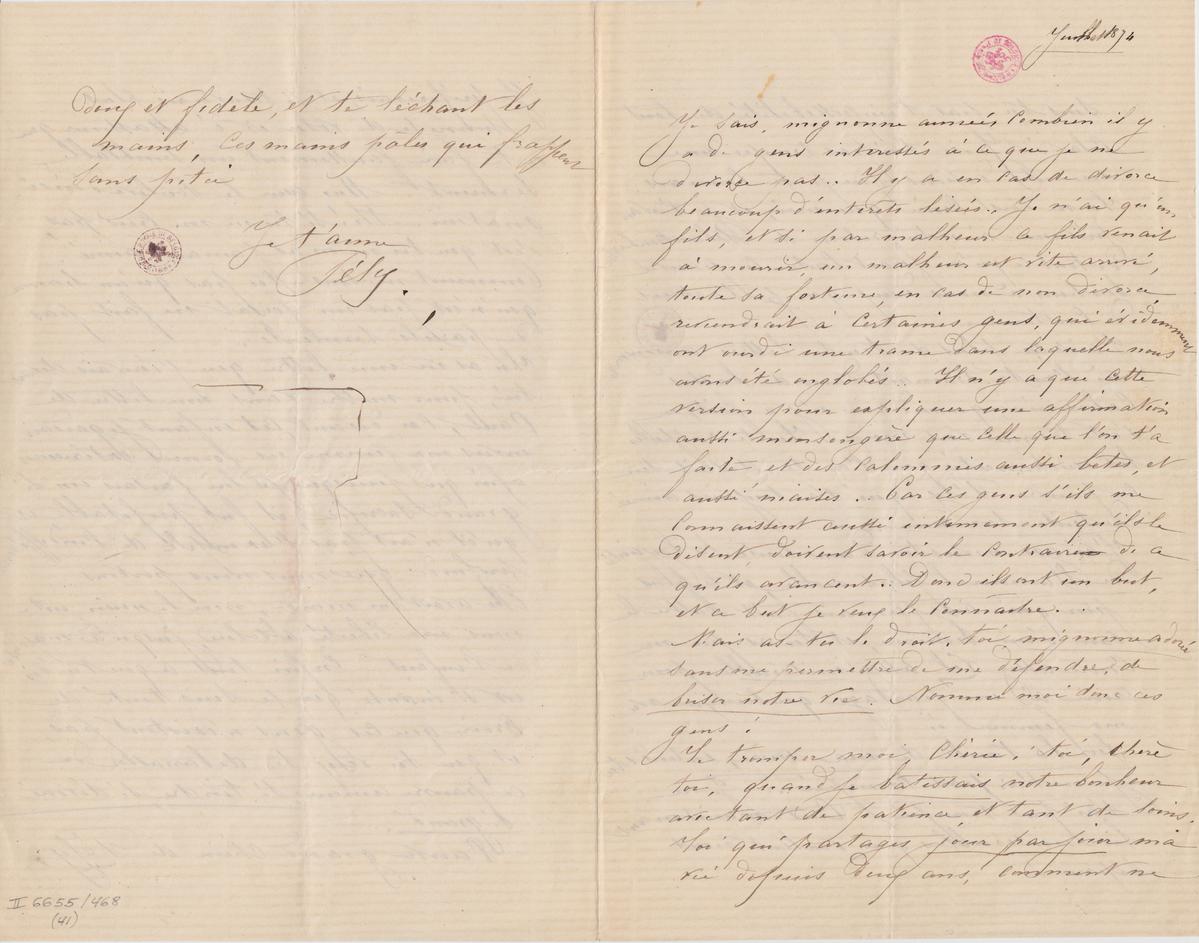 Juillet 1874
Je sais, mignonne aimée, combien il y
a de gens interessés à ce que je ne
divorce pas.. Il y a en cas de divorce
beaucoup d'interets lésés.. Je n'ai qu'un
fils, et si par malheur ce fils venait
à mourir, un malheur est vite arrivé,
toute sa fortune, en cas de non divorce
reviendrait à certaines gens, qui évidemment
ont ourdi une trame dans laquelle nous
avons été englobés.. Il n'y a que cette
version pour expliquer une affirmation
aussi mensongère que celle que l'on t'a
faite, et des calomnies aussi betes, et
aussi niaises.. Car ces gens s'ils me
connaissent aussi intimement qu'ils le
disent, doivent savoir le contraire de ce
qu'ils avancent.. Donc ils ont un but,
et ce but je veux le connaitre..
Mais as-tu le droit, toi mignonne adorée
sans me permettre de me défendre, de
briser notre vie. Nomme moi donc ces
gens!
Te tromper moi, chérie, toi, chère
toi, quand je batissais notre bonheur
avec tant de patience, et tant de soins.
Toi qui partages jour par jour ma
vie depuis deux ans, comment ne
doux et fidèle, et te léchant les
mains, ces mains pâles qui frappent
sans pitié
Je t'aime
Fély.
II 6655/468
(41)